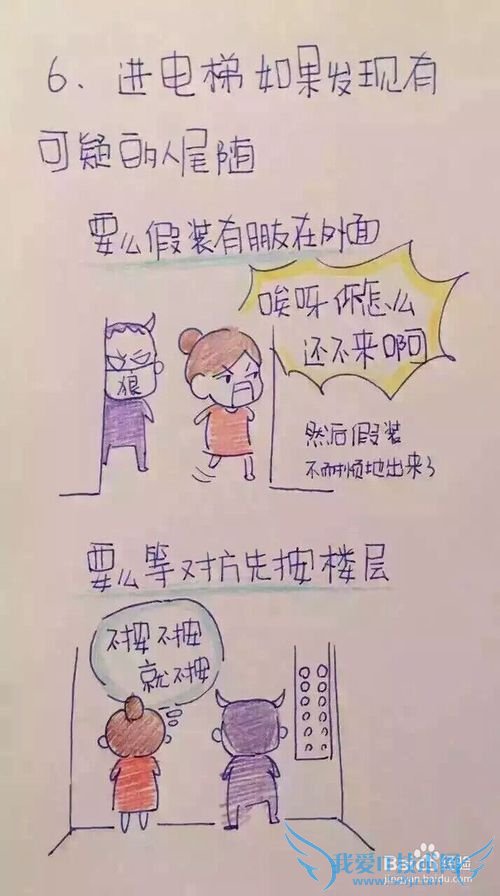 6、进电梯如果发现有
可疑的人尾随
要么假装有朋友在外面
唉呀你怎么
还不来啊
狼
然后假装
不耐烦地出来了
要么等对方先按楼层
不按不按
就不按
我爱IT技术网
Baidu经验
jingyan.baidu.com